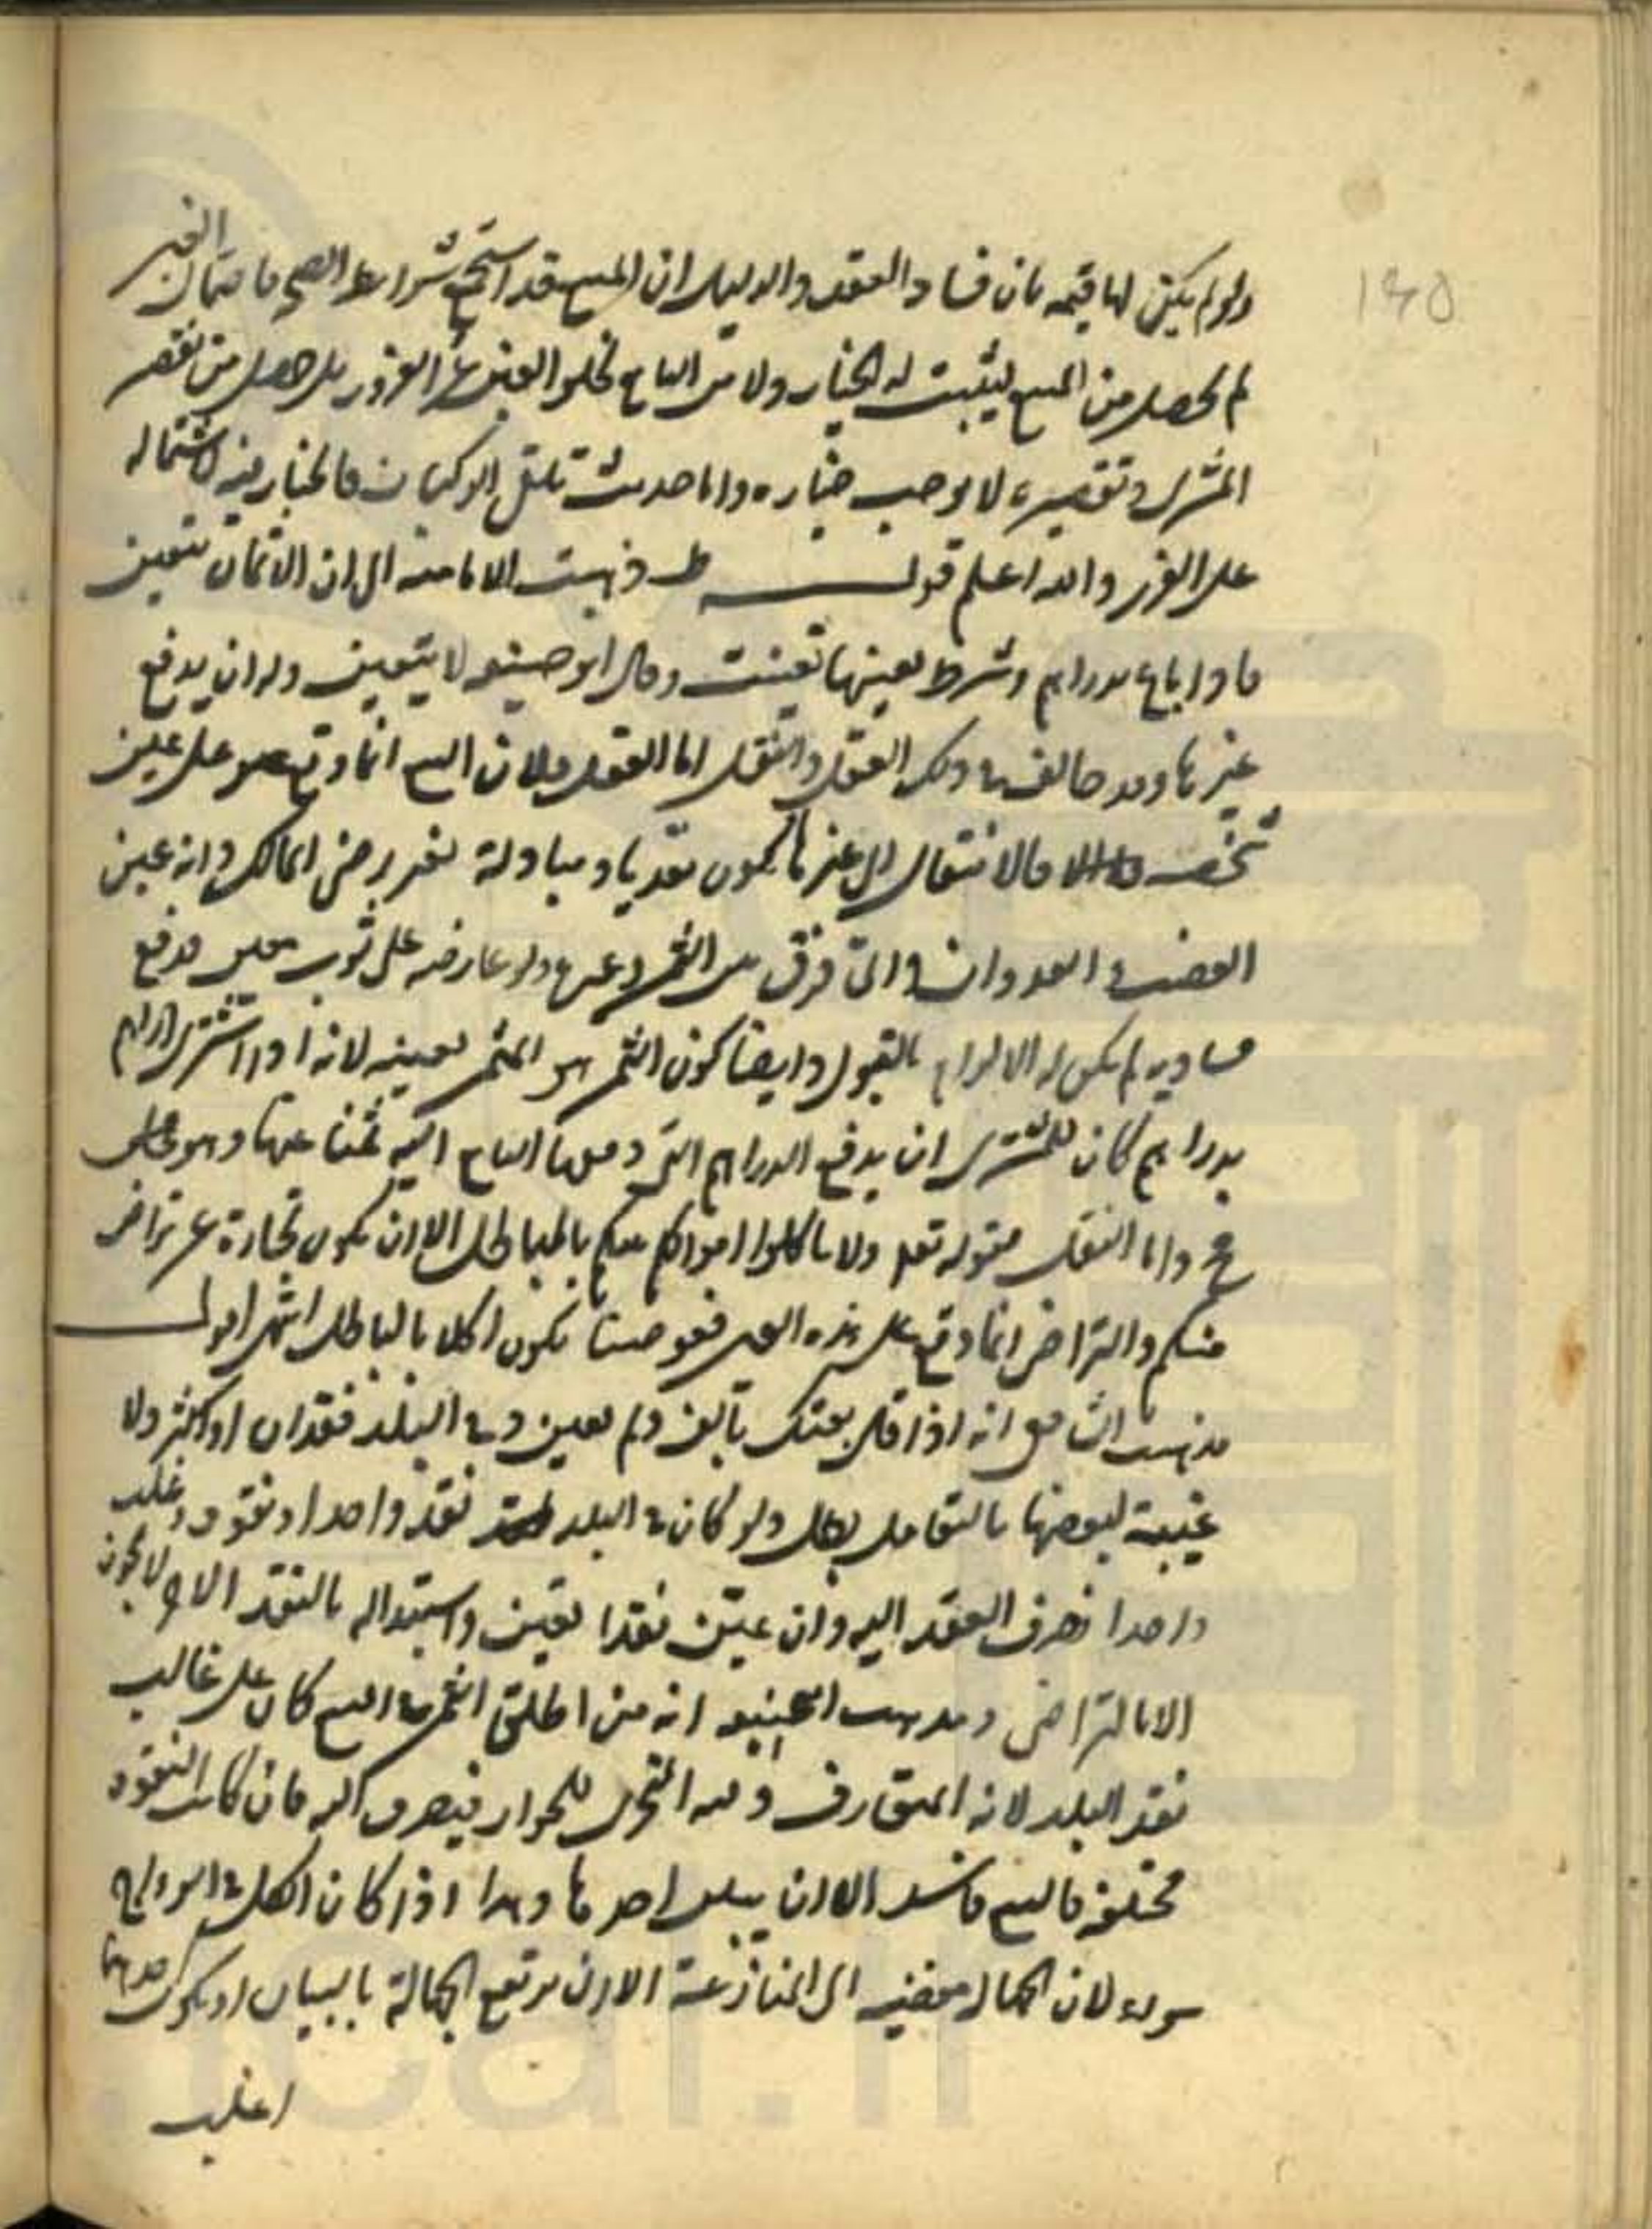 ١٤٥
ولو لم يكن لها قيمه بان فساد العقد والدليل ان المبيع قد استجمع شرايط الصحه فاحتمال الغبن
لم يحصل من المبيع ليثبت له الخيار ولا من البايع لخلو الغبن عن الغرور بل حصل من تقصير
المشترى وتقصيره لا يوجب خياره واما حديث تلقى الركبان فالخيار فيه لاشتماله
على الغرر والله اعلم قولـــه ط وذهبت الامامية الى ان الاثمان تتعين
فاذا باع بدراهم وشرط بعينها تعينت وقال ابو حنيفه لا يتعين وله ان يدفع
غيرها وقد خالف فى ذلك العقل والنقل اما العقل فلان البيع انما وقع على عين
شخصيه فالانتقال الى غيرها يكون تعديا ومبادلة بغير رضى المالك وانه عين
الغصب والعدوان واى فرق بين الثمن وغيره ولو عارضه على ثوب معين فدفع
مساويه لم يكن له الالزام بالقبول وايضا كون الثمن هو المثمن بعينه لانه اذا اشترى دراهم
بدراهم كان للمشترى ان يدفع الدراهم التى دفعها البايع اليه ثمنا عنها وهو باطل
واما النقل فقوله تعالى ولا تاكلوا اموالكم بينكم بالباطل الا ان تكون تجارة عن تراض
منكم والتراضى انما وقع على هذه العين فعوضها يكون اكلا بالباطل انتهى اقولـــ
مذهب الشافعى انه اذا قال بعتك بالف ولم يعين وفى البلد نقدان او اكثر ولا
غلبة لبعضها بالتعامل بطل ولو كان فى البلد نقد واحد او نقود وغلب
واحد انصرف العقد اليه وان عين نقدا تعين واستبداله بالنقد الاخر لا يجوز
الا بالتراضى ومذهب ابى حنيفه انه من اطلق الثمن فى البيع كان على غالب
نقد البلد لانه المتعارف وفيه التحرى للجواز فيصرف اليه فان كانت النقود
مختلفه فالبيع فاسد الا ان يبين احدها وهذا اذا كان الكل فى الرواج
سواء لان الجهاله مفضيه الى المنازعة الا ان ترتفع الجهالة بالبيان او يكون احدهما
اغلب